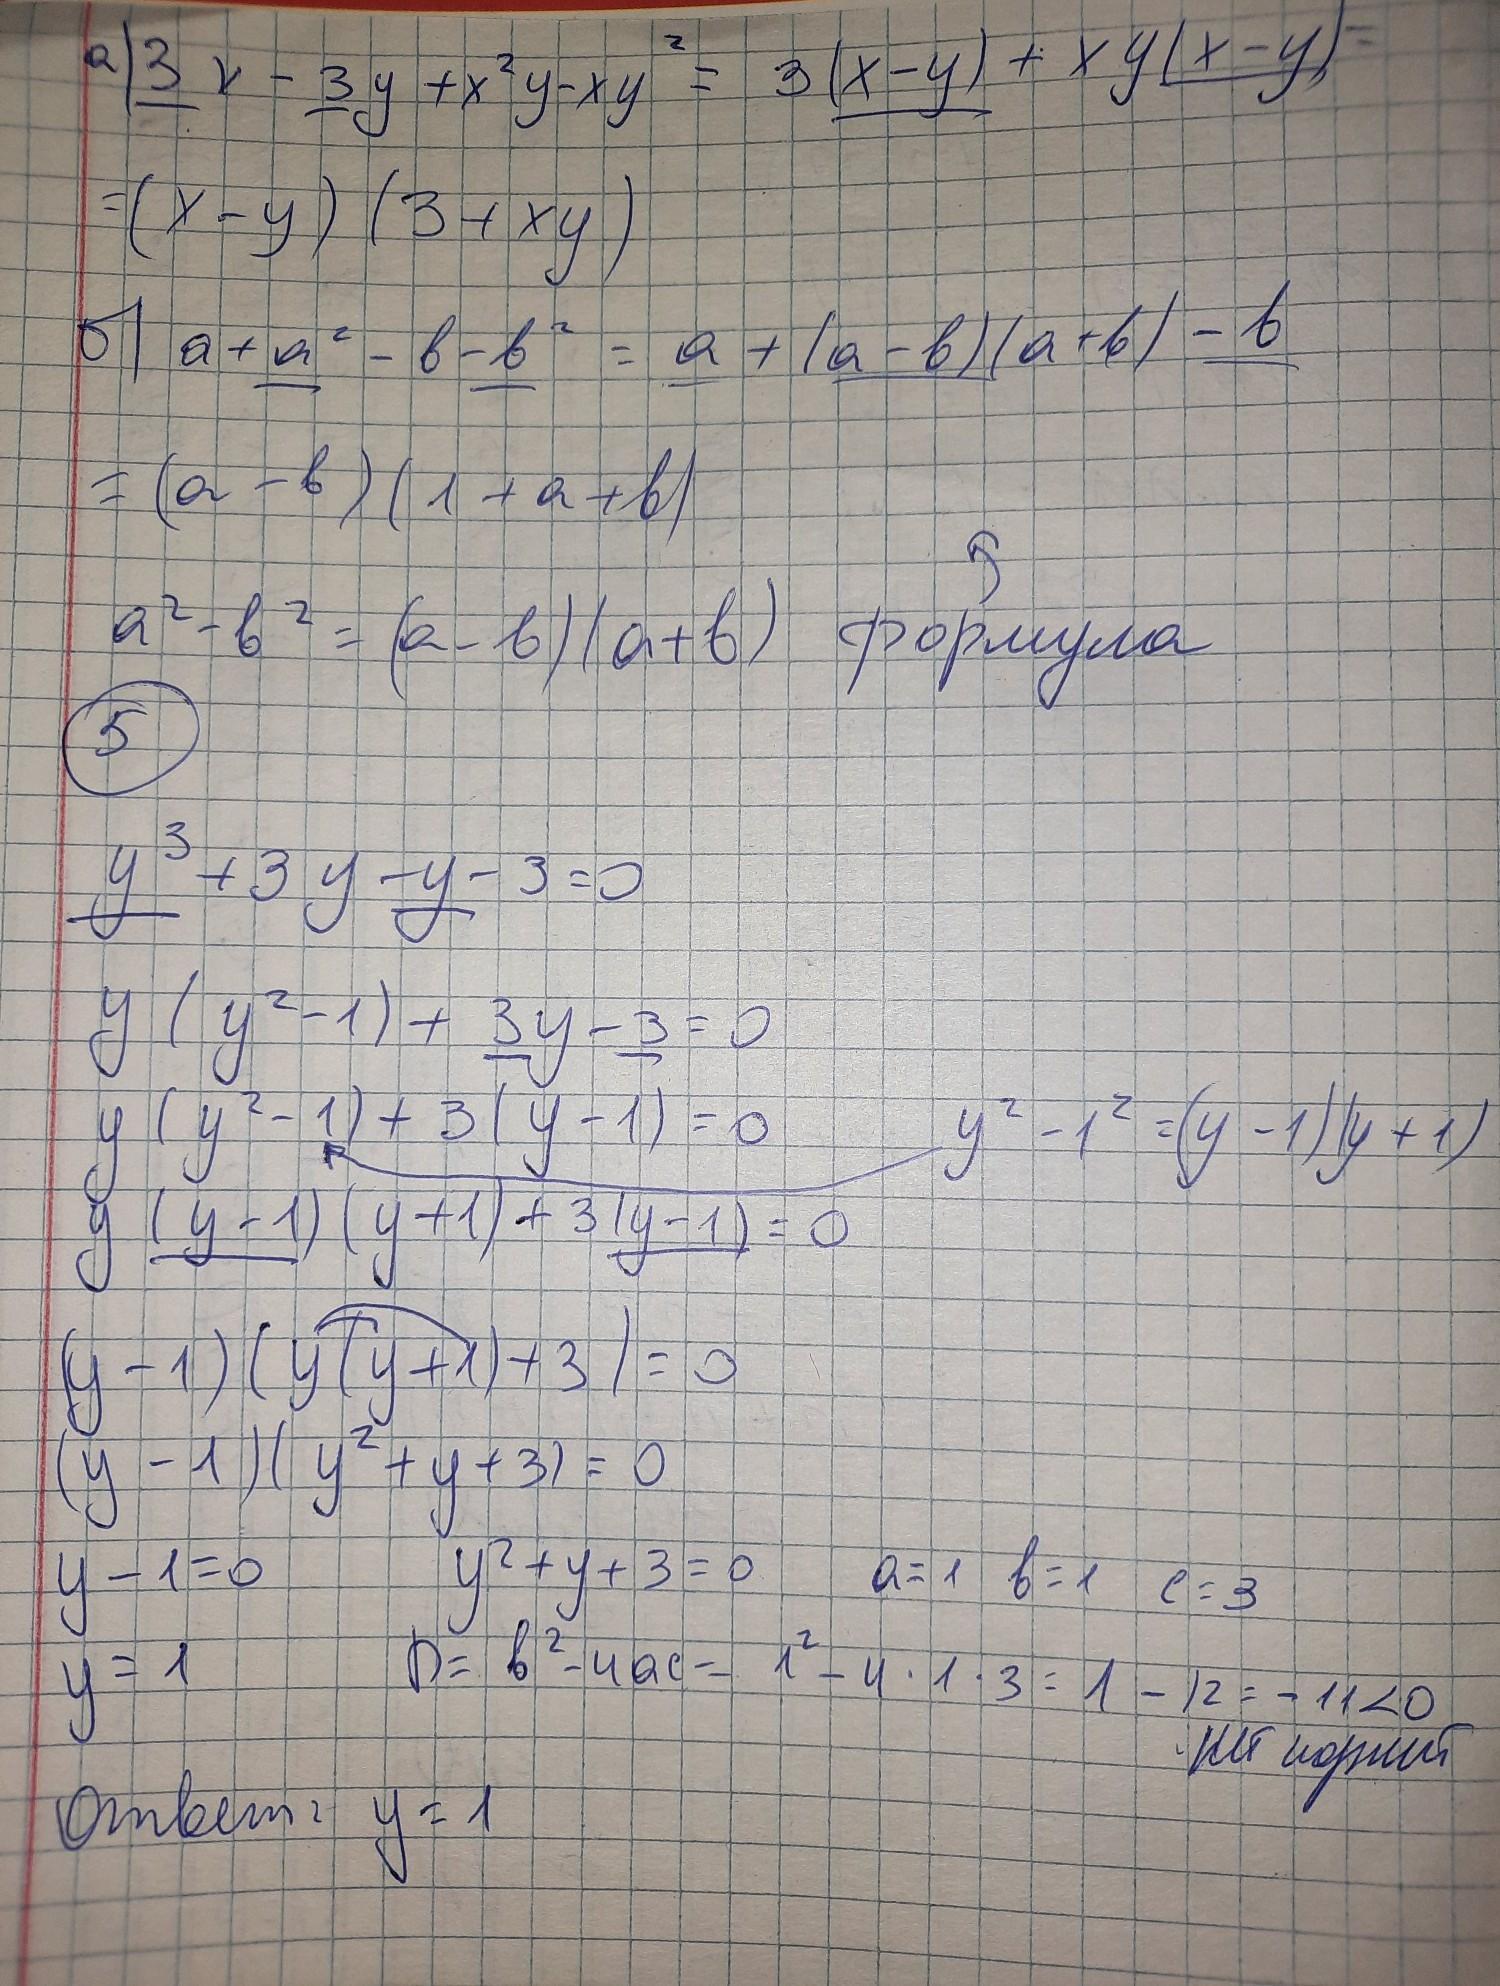 а) 3x - 3y + x²y - xy² = 3(x-y) + xy(x-y) =
= (x-y)(3+xy)
б) a + a² - b - b² = a + (a-b)(a+b) - b
= (a-b)(1+a+b)
a² - b² = (a-b)(a+b) формула
5
y³ + 3y - y - 3 = 0
y(y²-1) + 3y - 3 = 0
y(y²-1) + 3(y-1) = 0 y² - 1² = (y-1)(y+1)
y(y-1)(y+1) + 3(y-1) = 0
(y-1)(y(y+1)+3) = 0
(y-1)(y²+y+3) = 0
y - 1 = 0 y² + y + 3 = 0 a=1 b=1 c=3
y = 1 D = b² - 4ac = 1² - 4·1·3 = 1 - 12 = -11 < 0
нет корней
Ответ: y = 1